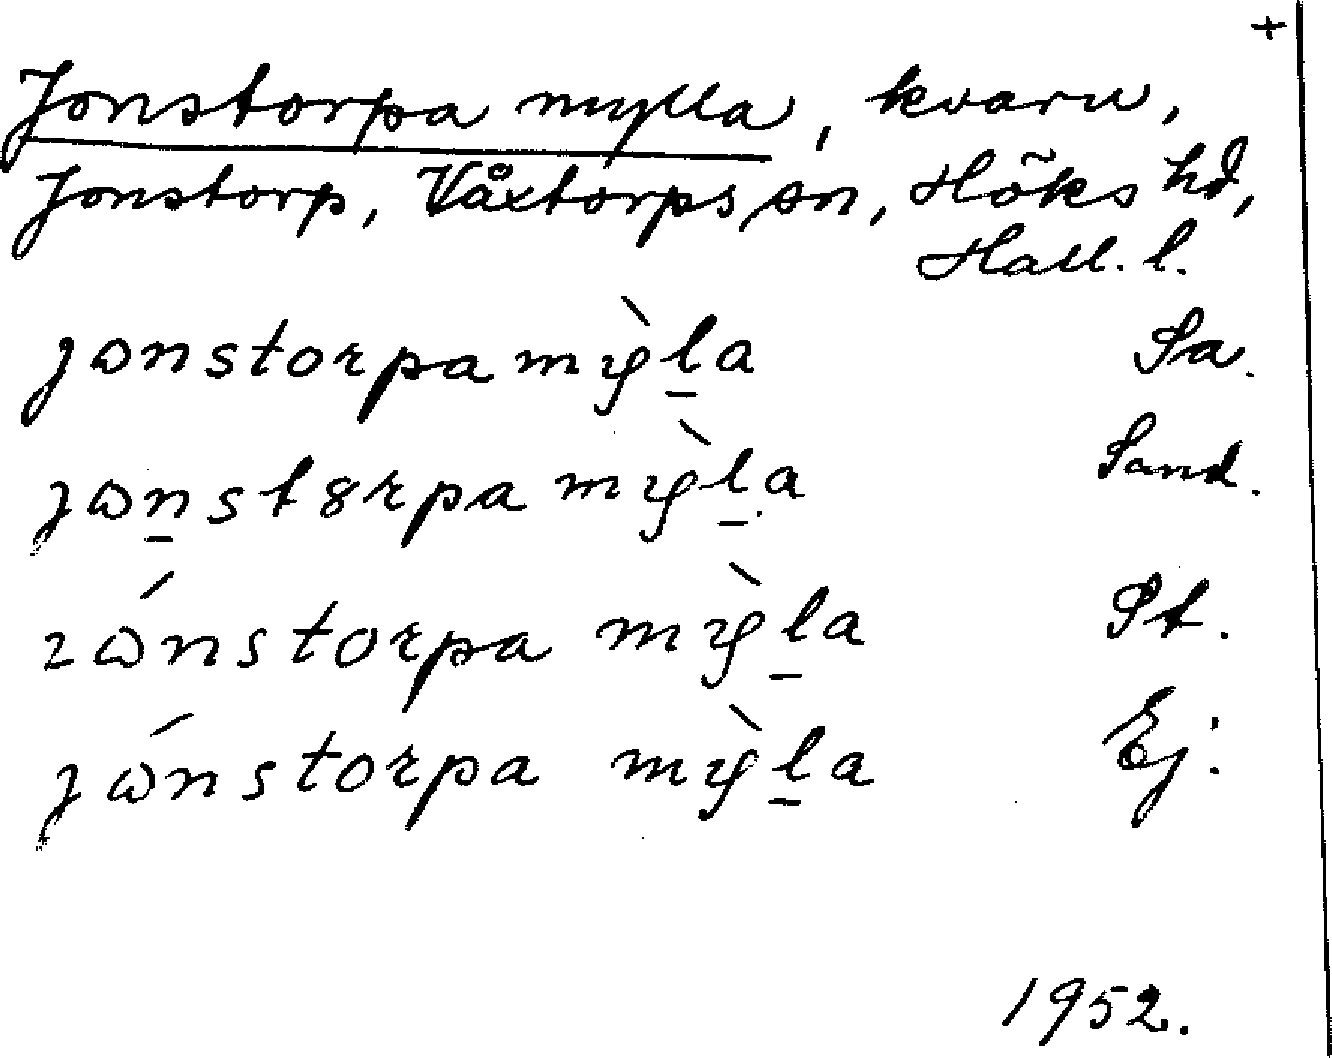 +
Jonstorpa mylla, kvarn,
Jonstorp, Våxtorps sn, Höks hd,
Hall. l.
jωnstorpamỳl̲a Sa.
jωn̲st8rpamỳl̲a Sand.
ɿώnstorpa mỳl̲a St.
jώnstorpa mỳl̲a Ej.
1952.